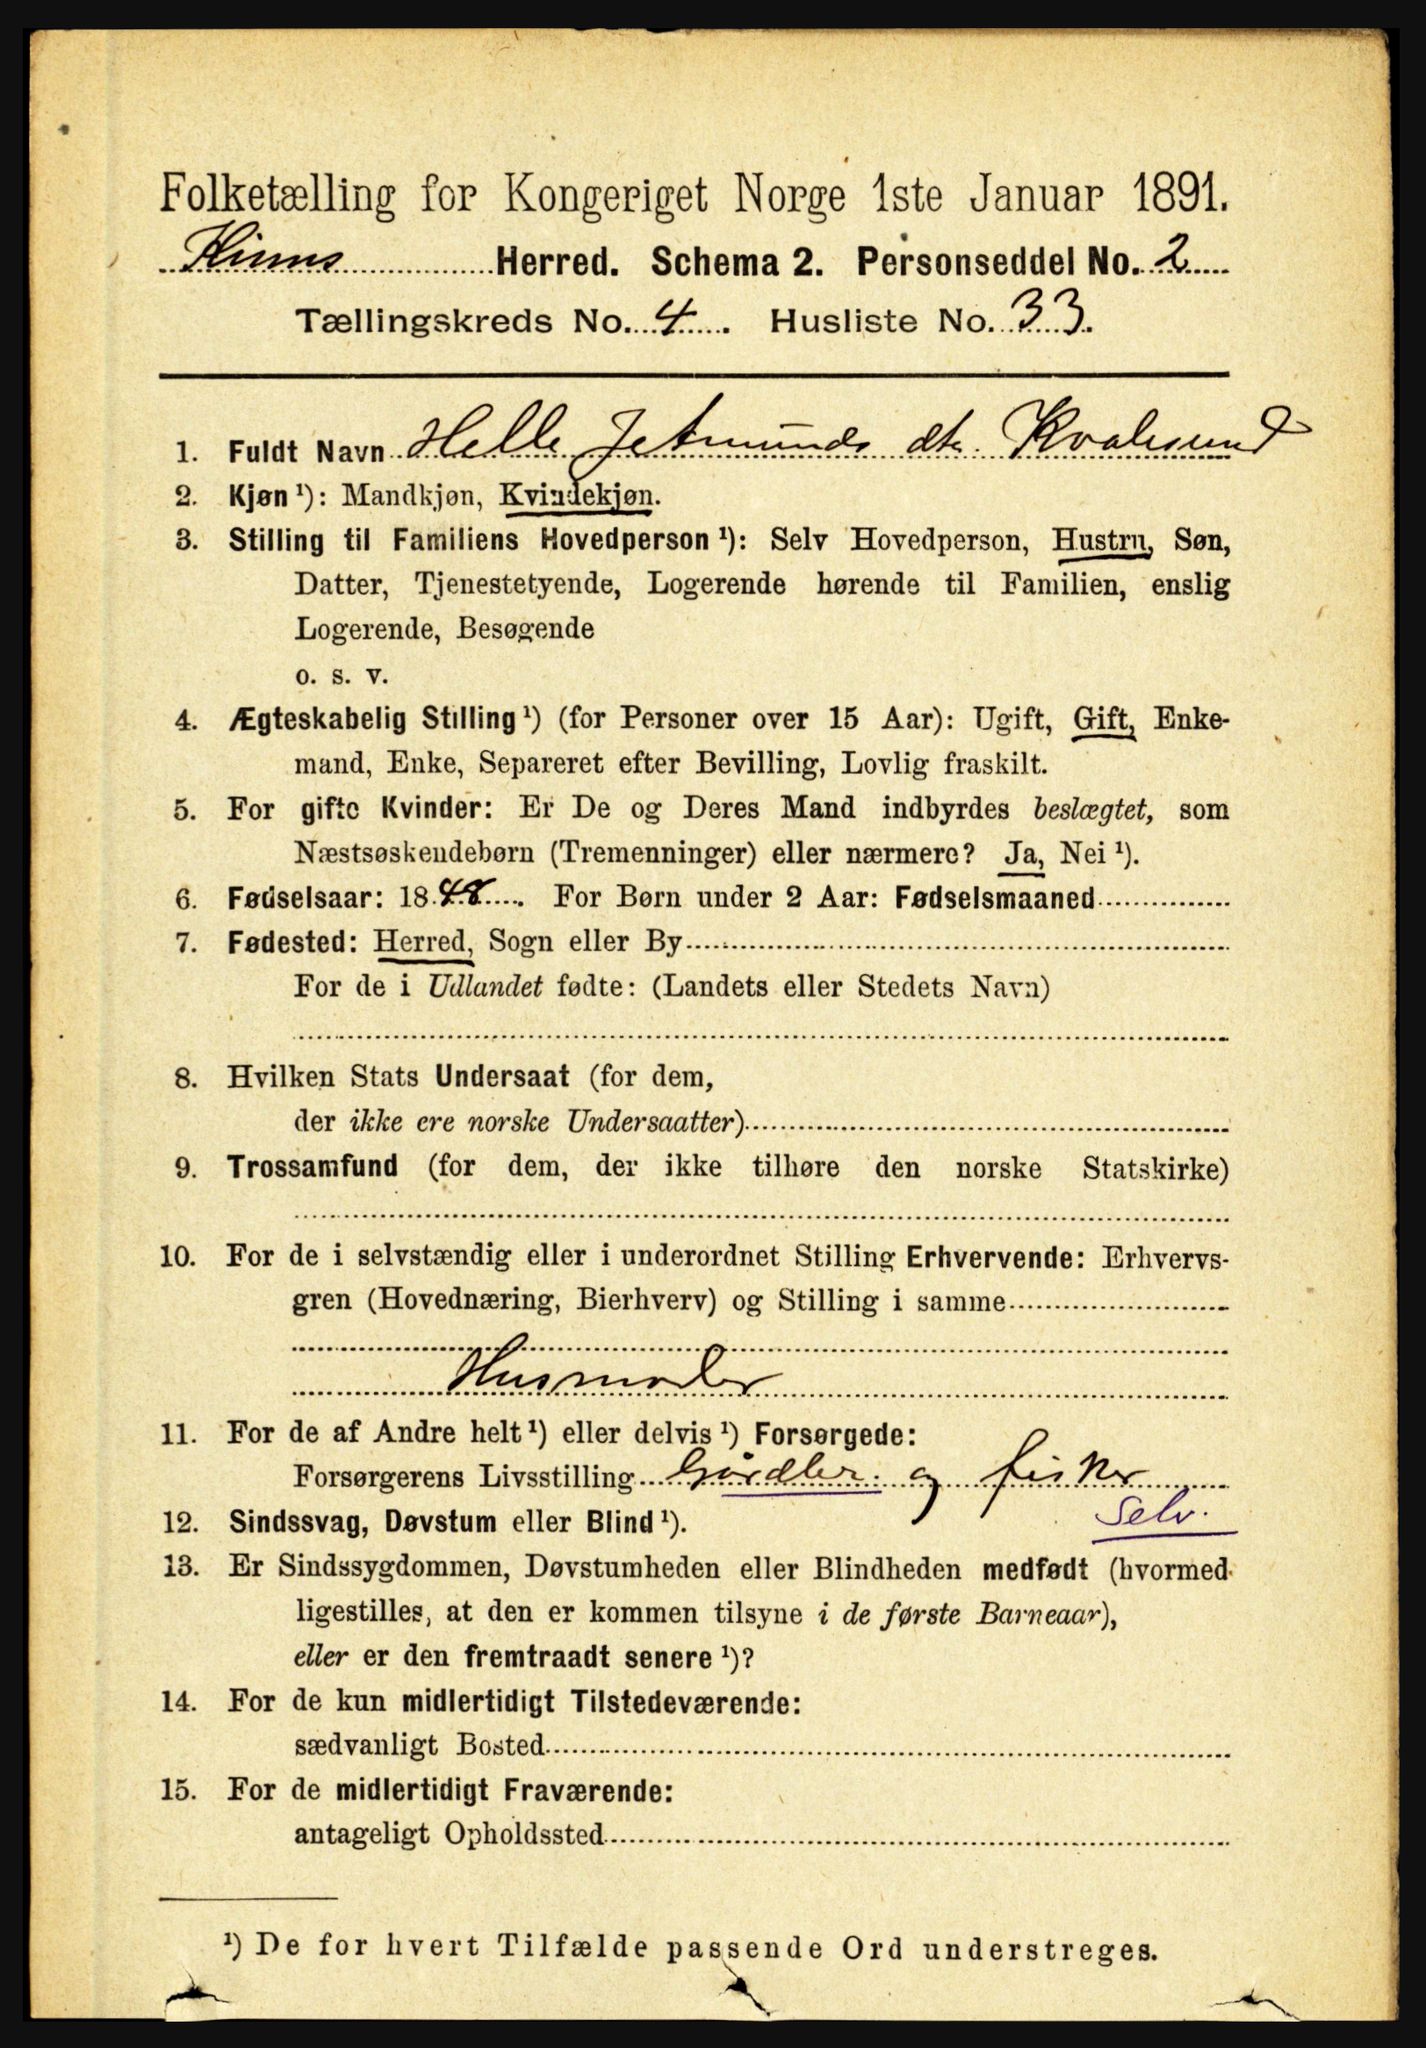 Folketælling for Kongeriget Norge 1ste Januar 1891.
Kinns Herred. Schema 2. Personseddel No. 2
Tællingskreds No. 4. Husliste No. 33.
1. Fuldt Navn Helle Jetmunds dtr. Kvalesund
2. Kjøn ¹): Mandkjøn, Kvindekjøn.
3. Stilling til Familiens Hovedperson ¹): Selv Hovedperson, Hustru, Søn,
Datter, Tjenestetyende, Logerende hørende til Familien, enslig
Logerende, Besøgende
o. s. v.
4. Ægteskabelig Stilling ¹) (for Personer over 15 Aar): Ugift, Gift, Enke-
mand, Enke, Separeret efter Bevilling, Lovlig fraskilt.
5. For gifte Kvinder: Er De og Deres Mand indbyrdes beslægtet, som
Næstsøskendebørn (Tremenninger) eller nærmere? Ja, Nei ¹).
6. Fødselsaar: 1848. For Børn under 2 Aar: Fødselsmaaned
7. Fødested: Herred, Sogn eller By
For de i Udlandet fødte: (Landets eller Stedets Navn)
8. Hvilken Stats Undersaat (for dem,
der ikke ere norske Undersaatter)
9. Trossamfund (for dem, der ikke tilhøre den norske Statskirke)
10. For de i selvstændig eller i underordnet Stilling Erhvervende: Erhvervs-
gren (Hovednæring, Bierhverv) og Stilling i samme
Husmoder
11. For de af Andre helt ¹) eller delvis ¹) Forsørgede:
Forsørgerens Livsstilling Gårdbr. og fisker
Selv.
12. Sindssvag, Døvstum eller Blind ¹).
13. Er Sindssygdommen, Døvstumheden eller Blindheden medfødt (hvormed
ligestilles, at den er kommen tilsyne i de første Barneaar),
eller er den fremtraadt senere ¹)?
14. For de kun midlertidigt Tilstedeværende:
sædvanligt Bosted
15. For de midlertidigt Fraværende:
antageligt Opholdssted
¹) De for hvert Tilfælde passende Ord understreges.